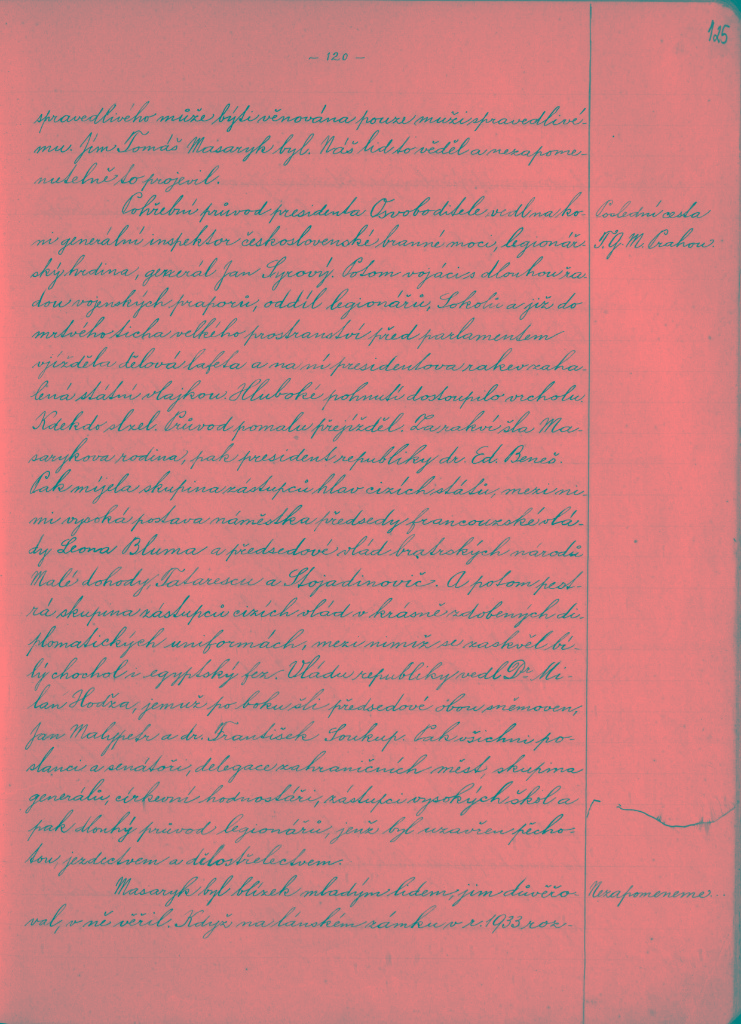 125
– 120 –
spravedlivého může býti věnována pouze muži spravedlivé-
mu. Jím Tomáš Masaryk byl. Náš lid to věděl a nezapome-
nutelně to projevil.
Pohřební průvod presidenta Osvoboditele vedl na ko-
Poslední cesta
ni generální inspektor československé branné moci, legionář-
T. G. M. Prahou.
ský hrdina, generál Jan Syrový. Potom vojáci s dlouhou řa-
dou vojenských praporů, oddíl legionářů, Sokolů a již do
mrtvého ticha velkého prostranství před parlamentem
vjížděla dělová lafeta a na ní presidentova rakev zaha-
lená státní vlajkou. Hluboké pohnutí dostoupilo vrcholu.
Kdekdo slzel. Průvod pomalu přejížděl. Za rakví šla Ma-
sarykova rodina, pak president republiky dr. Ed. Beneš.
Pak míjela skupina zástupců hlav cizích států, mezi ni-
mi vysoká postava náměstka předsedy francouzské vlá-
dy Leona Bluma a předsedové vlád bratrských národů
Malé dohody, Tatarescu a Stojadinovič. A potom pest-
rá skupina zástupců cizích vlád v krásně zdobených di-
plomatických uniformách, mezi nimiž se zaskvěl bí-
lý chochol i egyptský fez. Vládu republiky vedl Dr. Mi-
lan Hodža, jemuž po boku šli předsedové obou sněmoven,
Jan Malypetr a dr. František Soukup. Pak všichni po-
slanci a senátoři, delegace zahraničních měst, skupina
generálů, církevní hodnostáři, zástupci vysokých škol a
pak dlouhý průvod legionářů, jenž byl uzavřen pěcho-
tou, jezdectvem a dělostřelectvem.
Masaryk byl blízek mladým lidem, jim důvěřo-
Nezapomeneme...
val, v ně věřil. Když na lánském zámku v r. 1933 roz-